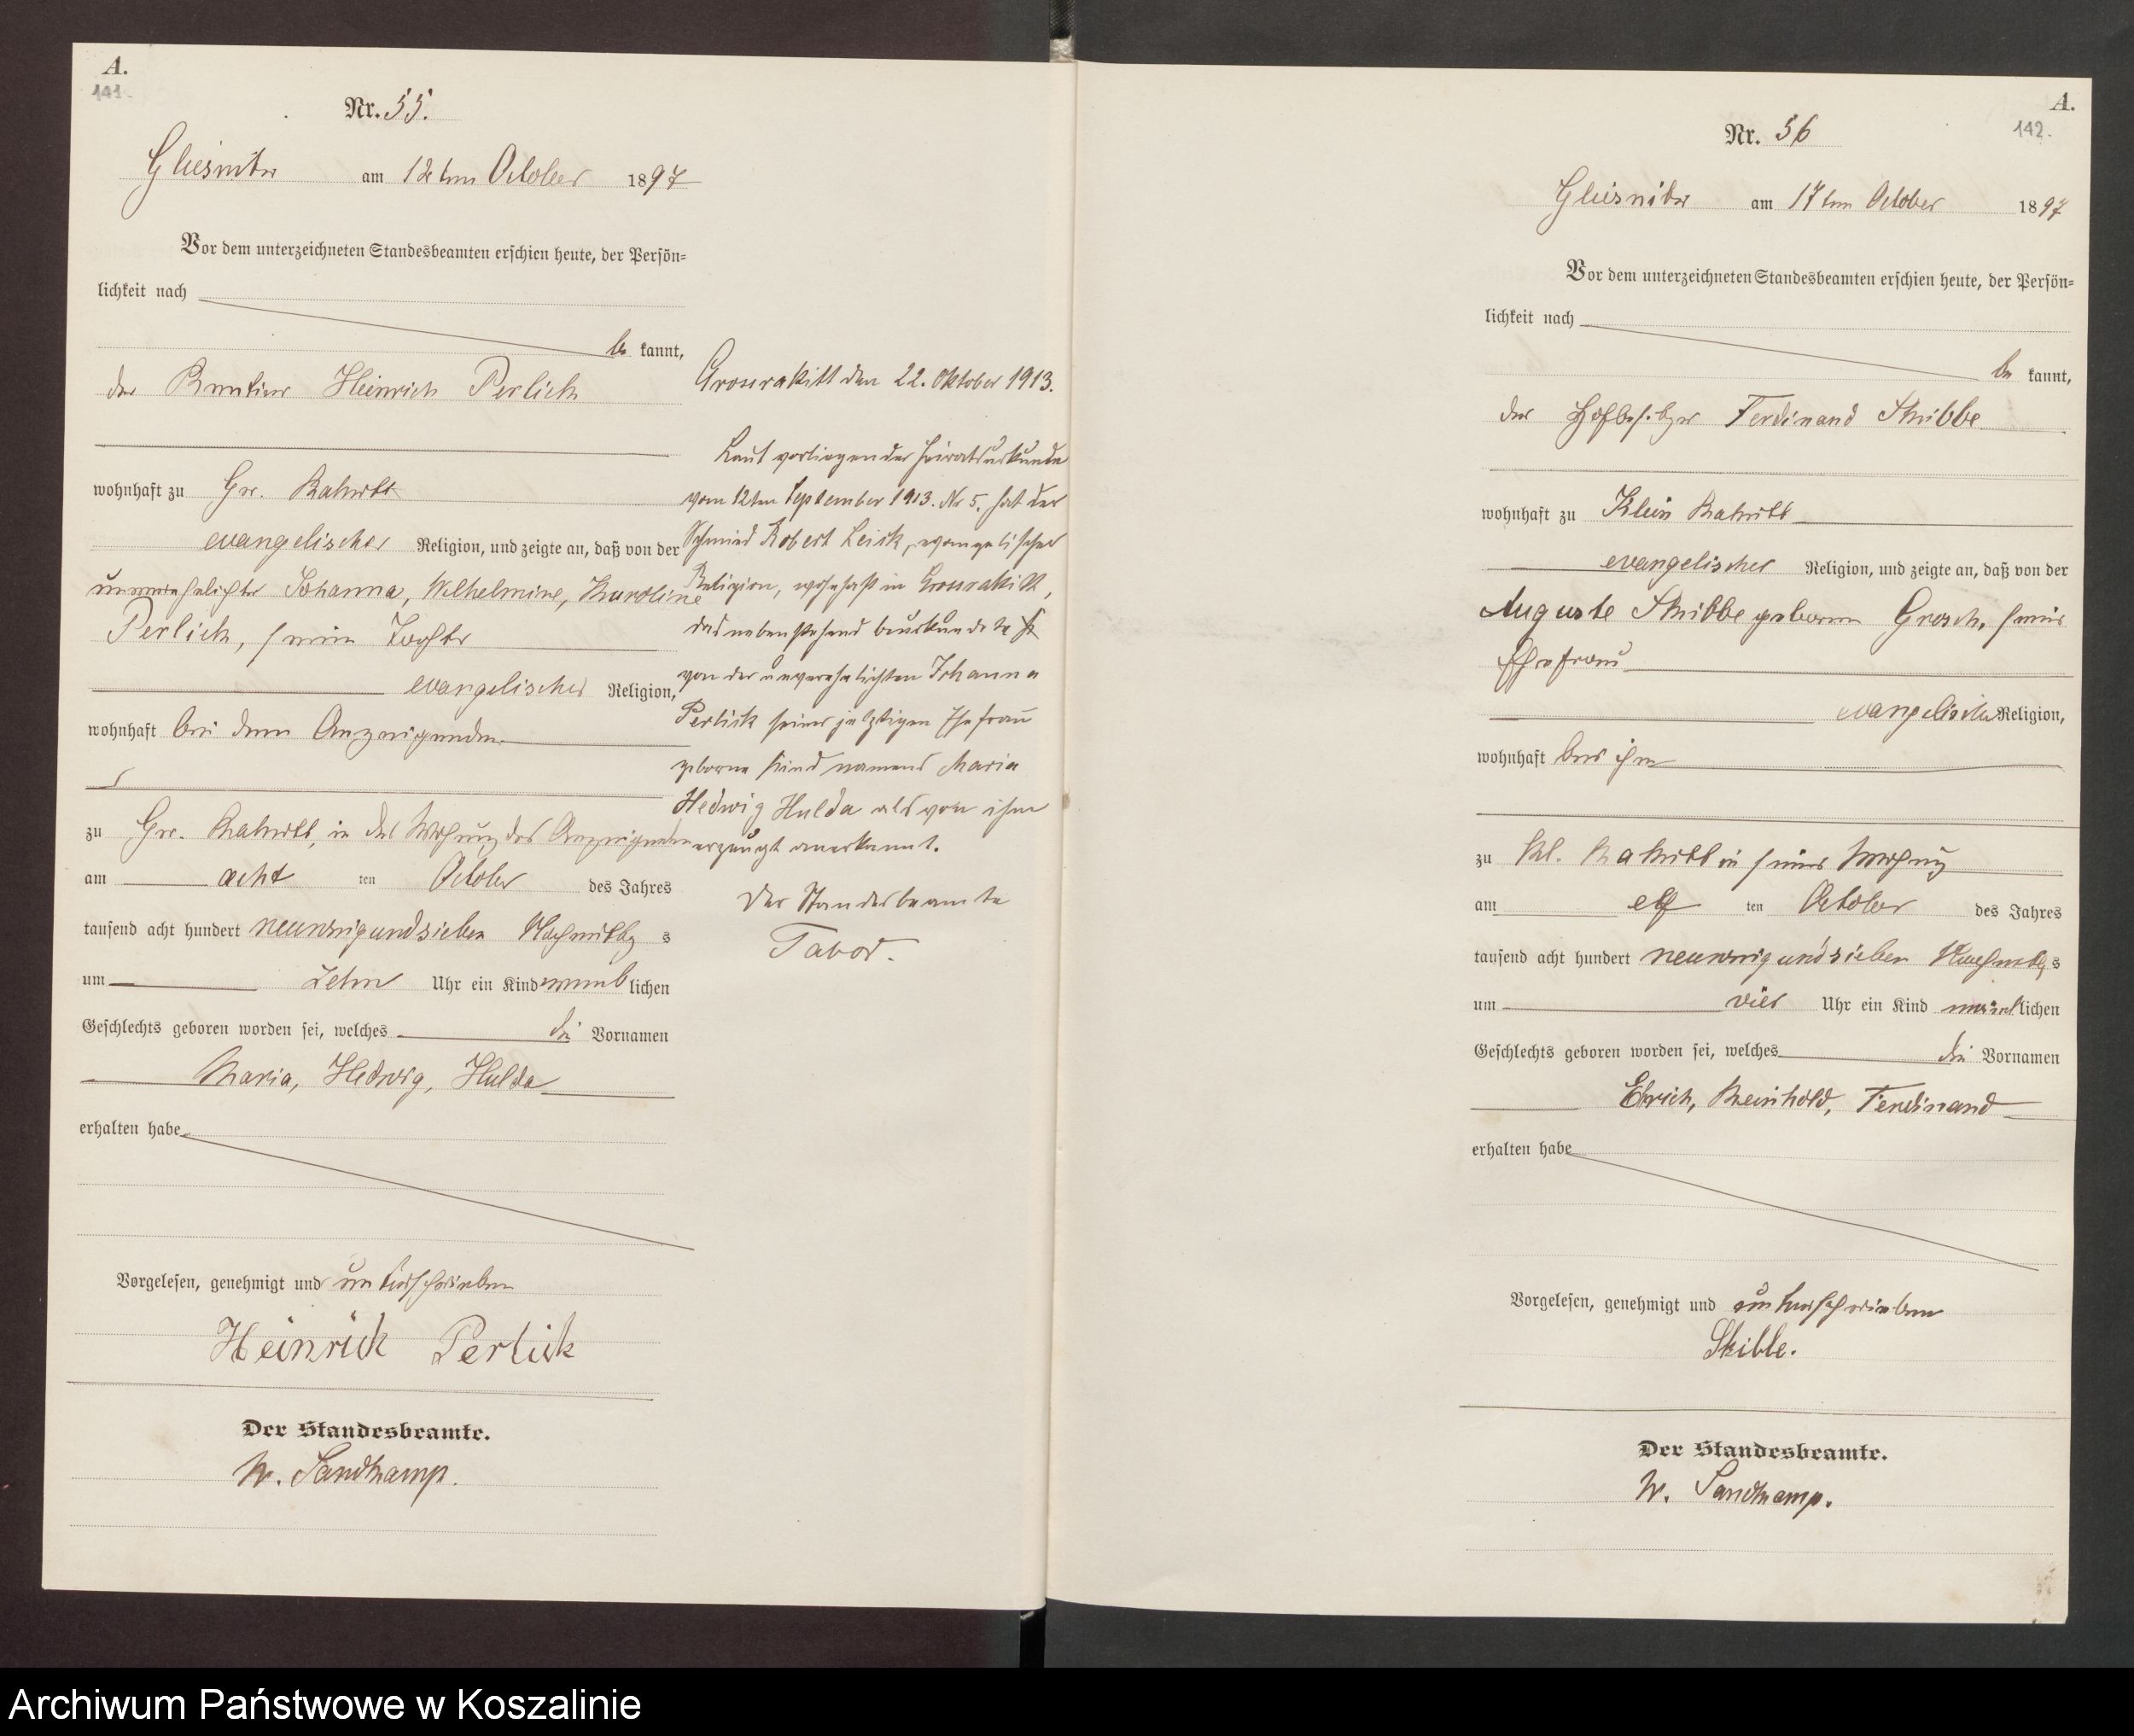 A.
141.
Nr. 55.
Gliesnitz am 12ten October 1897
Vor dem unterzeichneten Standesbeamten erschien heute, der Persön=
lichkeit nach
be kannt,
der Rentier Heinrich Perlick
wohnhaft zu Gr. Rakitt
evangelischer Religion, und zeigte an, daß von der
unverehelichte Johanna, Wilhelmine, Karoline
Perlick, seine Tochter
evangelischer Religion,
wohnhaft bei dem Anzeigenden
zu Gr. Rakitt, in der Wohnung des Anzeigenden
am acht ten October des Jahres
tausend acht hundert neunzigundsieben Nachmittag s
um zehn Uhr ein Kind weib lichen
Geschlechts geboren worden sei, welches die Vornamen
Maria, Hedwig, Hulda
erhalten habe
Vorgelesen, genehmigt und unterschrieben
Heinrich Perlick
Der Standesbeamte.
W. Sandkamp.
Grossrakitt den 22. Oktober 1913.
Laut vorliegender Heiratsurkunde
vom 12ten September 1913. Nr 5. hat der
Schmied Robert Leick, evangelischer
Religion, wohnhaft in Grossrakitt,
das nebenstehend beurkundete
von der unverehelichten Johanna
Perlick seiner jetzigen Ehefrau
geborne Kind namens Maria
Hedwig Hulda als von ihm
erzeugt anerkannt.
Der Standesbeamte
Tabor.
A.
142.
Nr. 56
Gliesnitz am 17ten October 1897
Vor dem unterzeichneten Standesbeamten erschien heute, der Persön=
lichkeit nach
be kannt,
der Hofbesitzer Ferdinand Skibbe
wohnhaft zu Klein Rakitt
evangelischer Religion, und zeigte an, daß von der
Auguste Skibbe geborne Grosch, seine
Ehefrau
evangelischer Religion,
wohnhaft bei ihm
zu Kl. Rakitt in seiner Wohnung
am elf ten October des Jahres
tausend acht hundert neunzigundsieben Nachmittag s
um vier Uhr ein Kind männ lichen
Geschlechts geboren worden sei, welches die Vornamen
Ehrich, Reinhold, Ferdinand
erhalten habe
Vorgelesen, genehmigt und unterschrieben
Skibbe.
Der Standesbeamte.
W. Sandkamp.
Archiwum Państwowe w Koszalinie